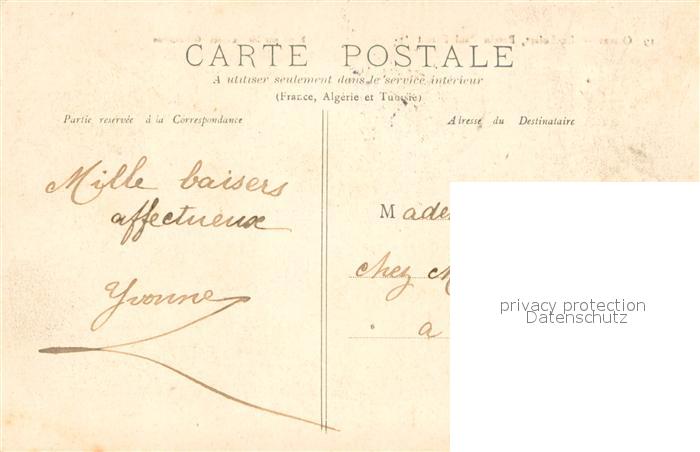 CARTE POSTALE
A utiliser seulement dans le service intérieur
(France, Algérie et Tunisie)
Partie reservée à la Correspondance
Adresse du Destinataire
Mille baisers
affectueux
Yvonne
Made
chez M
à
privacy protection
Datenschutz